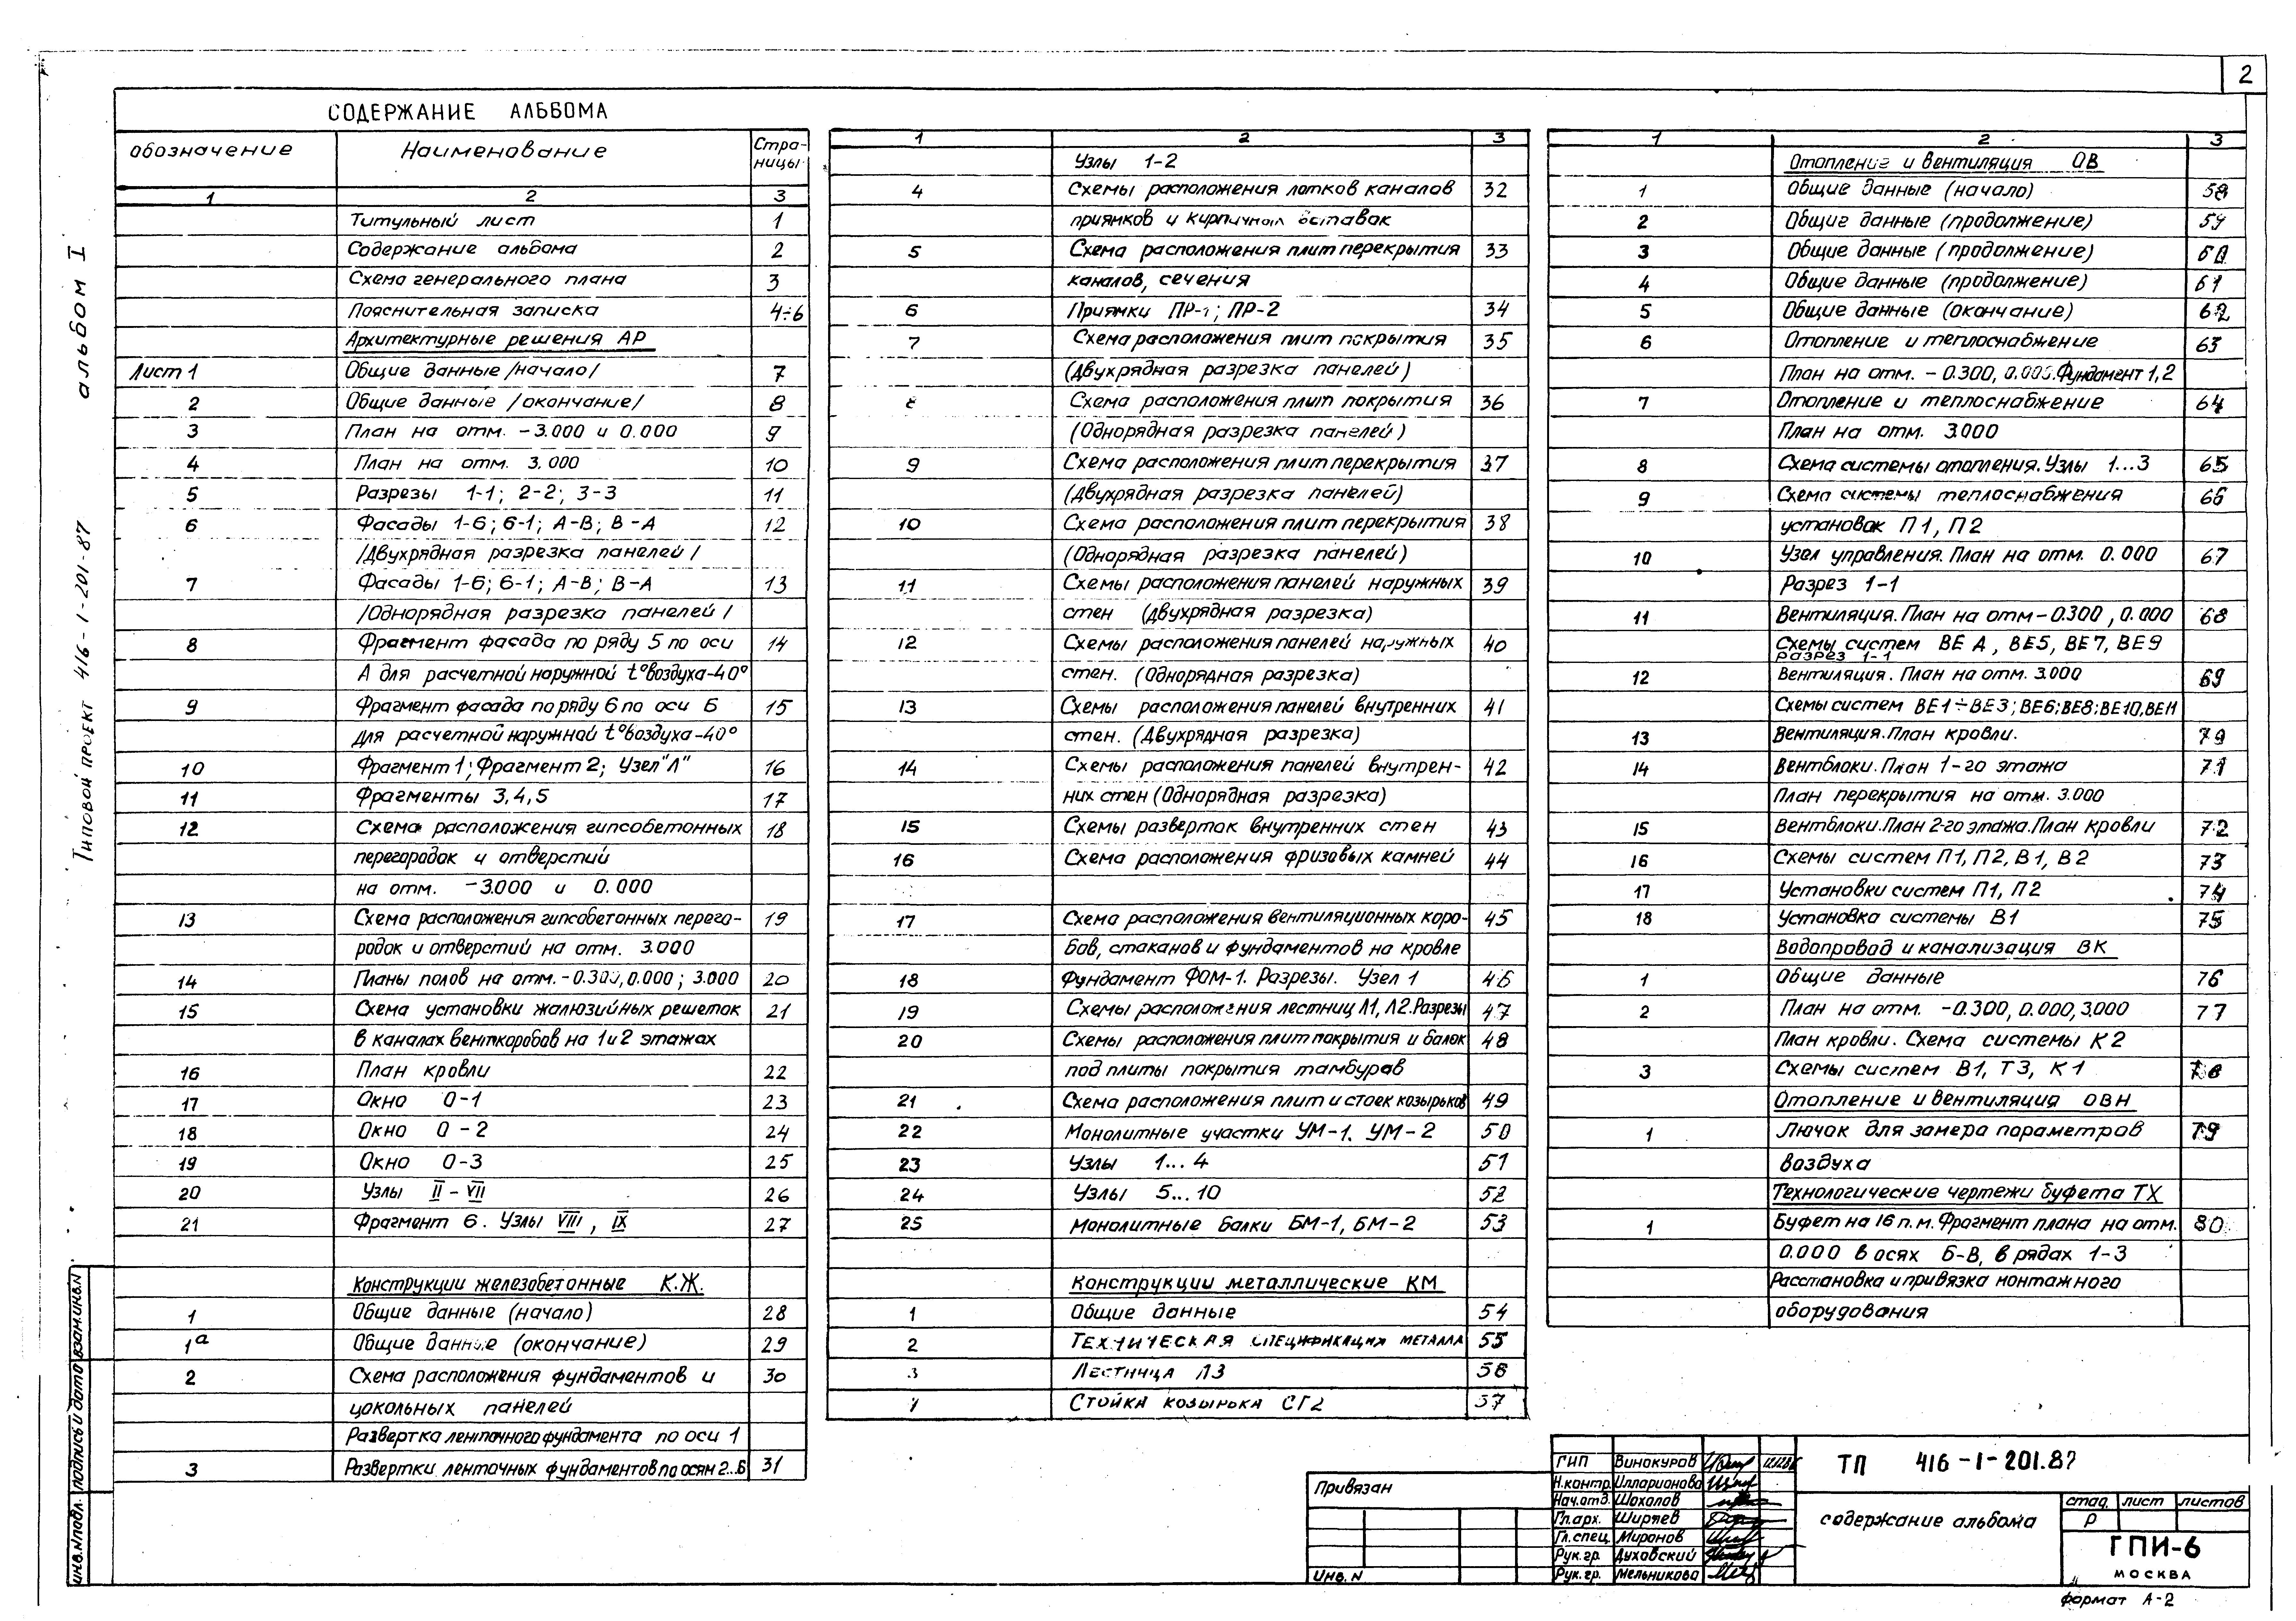 2
СОДЕРЖАНИЕ АЛЬБОМА
обозначение Наименование Стра-
ницы
1 2 3
Титульный лист 1
Содержание альбома 2
Схема генерального плана 3
Пояснительная записка 4÷6
Архитектурные решения АР
Лист 1 Общие данные /начало/ 7
2 Общие данные /окончание/ 8
3 План на отм. -3.000 и 0.000 9
4 План на отм. 3.000 10
5 Разрезы 1-1; 2-2; 3-3 11
6 Фасады 1-6; 6-1; А-В; В-А 12
/Двухрядная разрезка панелей/
7 Фасады 1-6; 6-1; А-В; В-А 13
/Однорядная разрезка панелей/
8 Фрагмент фасада по ряду 5 по оси 14
А для расчетной наружной t° воздуха-40°
9 Фрагмент фасада по ряду 6 по оси Б 15
для расчетной наружной t° воздуха-40°
10 Фрагмент 1; Фрагмент 2; Узел "Л" 16
11 Фрагменты 3,4,5 17
12 Схема расположения гипсобетонных 18
перегородок и отверстий
на отм. -3.000 и 0.000
13 Схема расположения гипсобетонных перего- 19
родок и отверстий на отм. 3.000
14 Планы полов на отм. -0.300, 0.000; 3.000 20
15 Схема установки жалюзийных решеток 21
в каналах венткоробов на 1 и 2 этажах
16 План кровли 22
17 Окно О-1 23
18 Окно О-2 24
19 Окно О-3 25
20 Узлы II - VII 26
21 Фрагмент 6. Узлы VIII, IX 27
Конструкции железобетонные К.Ж.
1 Общие данные (начало) 28
1а Общие данные (окончание) 29
2 Схема расположения фундаментов и 30
цокольных панелей
Развертка ленточного фундамента по оси 1
3 Развертки ленточных фундаментов по осям 2...6 31
1 2 3
Узлы 1-2
4 Схемы расположения лотков каналов 32
приямков и кирпичных вставок
5 Схема расположения плит перекрытия 33
каналов, сечения
6 Приямки ПР-1; ПР-2 34
7 Схема расположения плит покрытия 35
(Двухрядная разрезка панелей)
8 Схема расположения плит покрытия 36
(Однорядная разрезка панелей)
9 Схема расположения плит перекрытия 37
(Двухрядная разрезка панелей)
10 Схема расположения плит перекрытия 38
(Однорядная разрезка панелей)
11 Схемы расположения панелей наружных 39
стен (Двухрядная разрезка)
12 Схемы расположения панелей наружных 40
стен. (Однорядная разрезка)
13 Схемы расположения панелей внутренних 41
стен. (Двухрядная разрезка)
14 Схемы расположения панелей внутрен- 42
них стен (Однорядная разрезка)
15 Схемы разверток внутренних стен 43
16 Схема расположения фризовых камней 44
17 Схема расположения вентиляционных коро- 45
бов, стаканов и фундаментов на кровле
18 Фундамент ФОМ-1. Разрезы. Узел 1 46
19 Схемы расположения лестниц Л1, Л2. Разрезы 47
20 Схемы расположения плит покрытия и балок 48
под плиты покрытия тамбуров
21 Схема расположения плит и стоек козырьков 49
22 Монолитные участки УМ-1, УМ-2 50
23 Узлы 1...4 51
24 Узлы 5...10 52
25 Монолитные балки БМ-1, БМ-2 53
Конструкции металлические КМ
1 Общие данные 54
2 Техническая спецификация металла 55
3 Лестница Л3 56
Стойка козырька СГ2 57
1 2 3
Отопление и вентиляция ОВ
1 Общие данные (начало) 58
2 Общие данные (продолжение) 59
3 Общие данные (продолжение) 60
4 Общие данные (продолжение) 61
5 Общие данные (окончание) 62
6 Отопление и теплоснабжение 63
План на отм. -0.300, 0.000. Фундамент 1,2
7 Отопление и теплоснабжение 64
План на отм. 3.000
8 Схема системы отопления. Узлы 1...3 65
9 Схема системы теплоснабжения 66
установок П1, П2
10 Узел управления. План на отм. 0.000 67
Разрез 1-1
11 Вентиляция. План на отм -0.300, 0.000 68
Схемы систем ВЕ А, ВЕ5, ВЕ7, ВЕ9
разрез 1-1
12 Вентиляция. План на отм. 3.000 69
Схемы систем ВЕ1÷ВЕ3; ВЕ6; ВЕ8; ВЕ10, ВЕ11
13 Вентиляция. План кровли. 70
14 Вентблоки. План 1-го этажа 71
План перекрытия на отм. 3.000
15 Вентблоки. План 2-го этажа. План кровли 72
16 Схемы систем П1, П2, В1, В2 73
17 Установки систем П1, П2 74
18 Установка системы В1 75
Водопровод и канализация ВК
1 Общие данные 76
2 План на отм. -0.300, 0.000, 3.000 77
План кровли. Схема системы К2
3 Схемы систем В1, Т3, К1 78
Отопление и вентиляция ОВН
1 Лючок для замера параметров 79
воздуха
Технологические чертежи буфета ТХ
1 Буфет на 16 п.м. Фрагмент плана на отм. 80
0.000 в осях Б-В, в рядах 1-3
Расстановка и привязка монтажного
оборудования
Типовой проект 416-1-201-87 альбом I
инв.N подл. подпись и дата взам.инв.N
Привязан
Инв. N
ГИП Винокуров
Н.контр. Илларионова
Нач.отд. Шахалов
Гл.арх. Ширяев
Гл.спец. Миронов
Рук.гр. Духовский
Рук.гр. Мельникова
ТП 416-1-201.87
содержание альбома
стад. лист листов
Р
ГПИ-6
МОСКВА
формат А-2